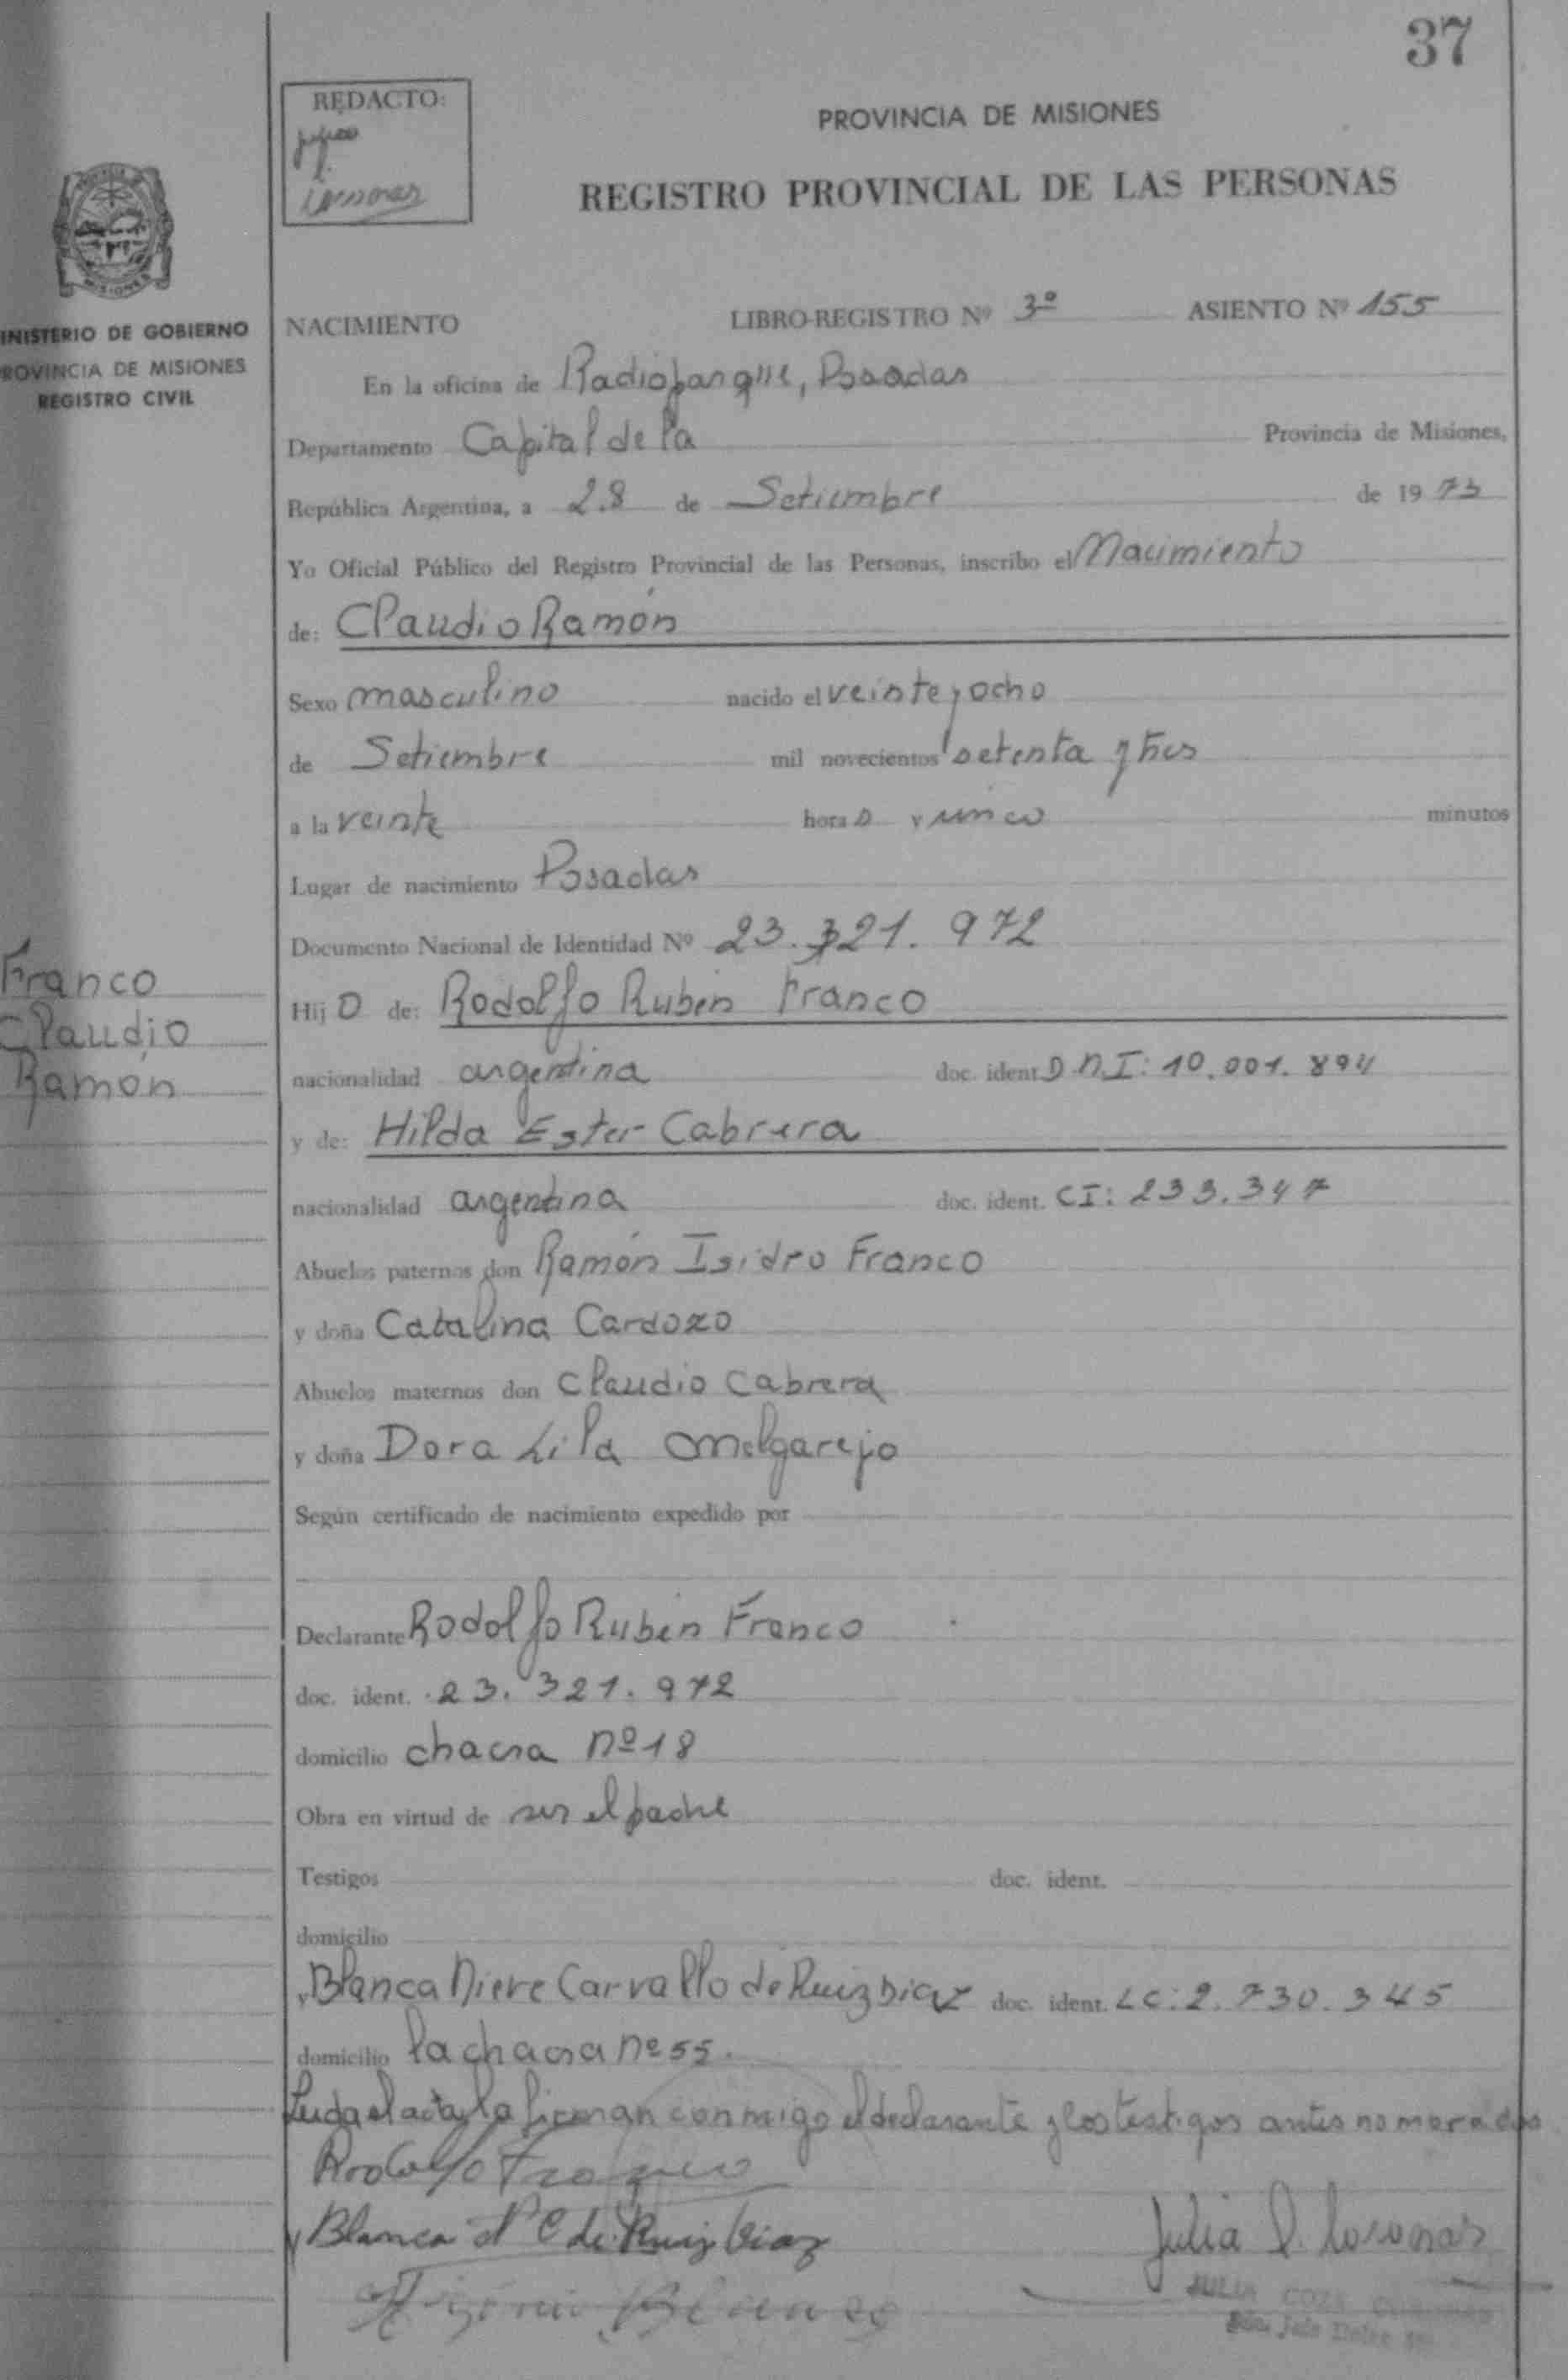 37
REDACTO:
PROVINCIA DE MISIONES
REGISTRO PROVINCIAL DE LAS PERSONAS
MISIONES
INISTERIO DE GOBIERNO
ROVINCIA DE MISIONES
REGISTRO CIVIL
NACIMIENTO LIBRO-REGISTRO Nº 3º ASIENTO Nº 155
En la oficina de Radioparque, Posadas
Departamento Capital de la Provincia de Misiones,
República Argentina, a 28 de Setiembre de 1973
Yo Oficial Público del Registro Provincial de las Personas, inscribo el Nacimiento
de: Claudio Ramón
Sexo masculino nacido el veinte y ocho
de Setiembre mil novecientos setenta y tres
a la veinte horas y cinco minutos
Lugar de nacimiento Posadas
Documento Nacional de Identidad Nº 23.321.972
Franco
Claudio
Ramón
Hijo de: Rodolfo Rubén Franco
nacionalidad argentina doc. ident D.N.I: 10.001.894
y de: Hilda Ester Cabrera
nacionalidad argentina doc. ident. CI: 233.347
Abuelos paternos don Ramón Isidro Franco
y doña Catalina Cardozo
Abuelos maternos don Claudio Cabrera
y doña Dora Lila Melgarejo
Según certificado de nacimiento expedido por
Declarante Rodolfo Rubén Franco
doc. ident. 23.321.972
domicilio chacra nº 18
Obra en virtud de ser el padre
Testigos doc. ident.
domicilio
Blanca Nieve Carvallo de Ruiz Diaz doc. ident. LC: 2.730.345
domicilio la chacra nº 55.
Leida el acta, la firman conmigo el declarante y los testigos antes nomorados
Rodolfo Franco
y Blanca N C de Ruiz Diaz
Julia
JULIA